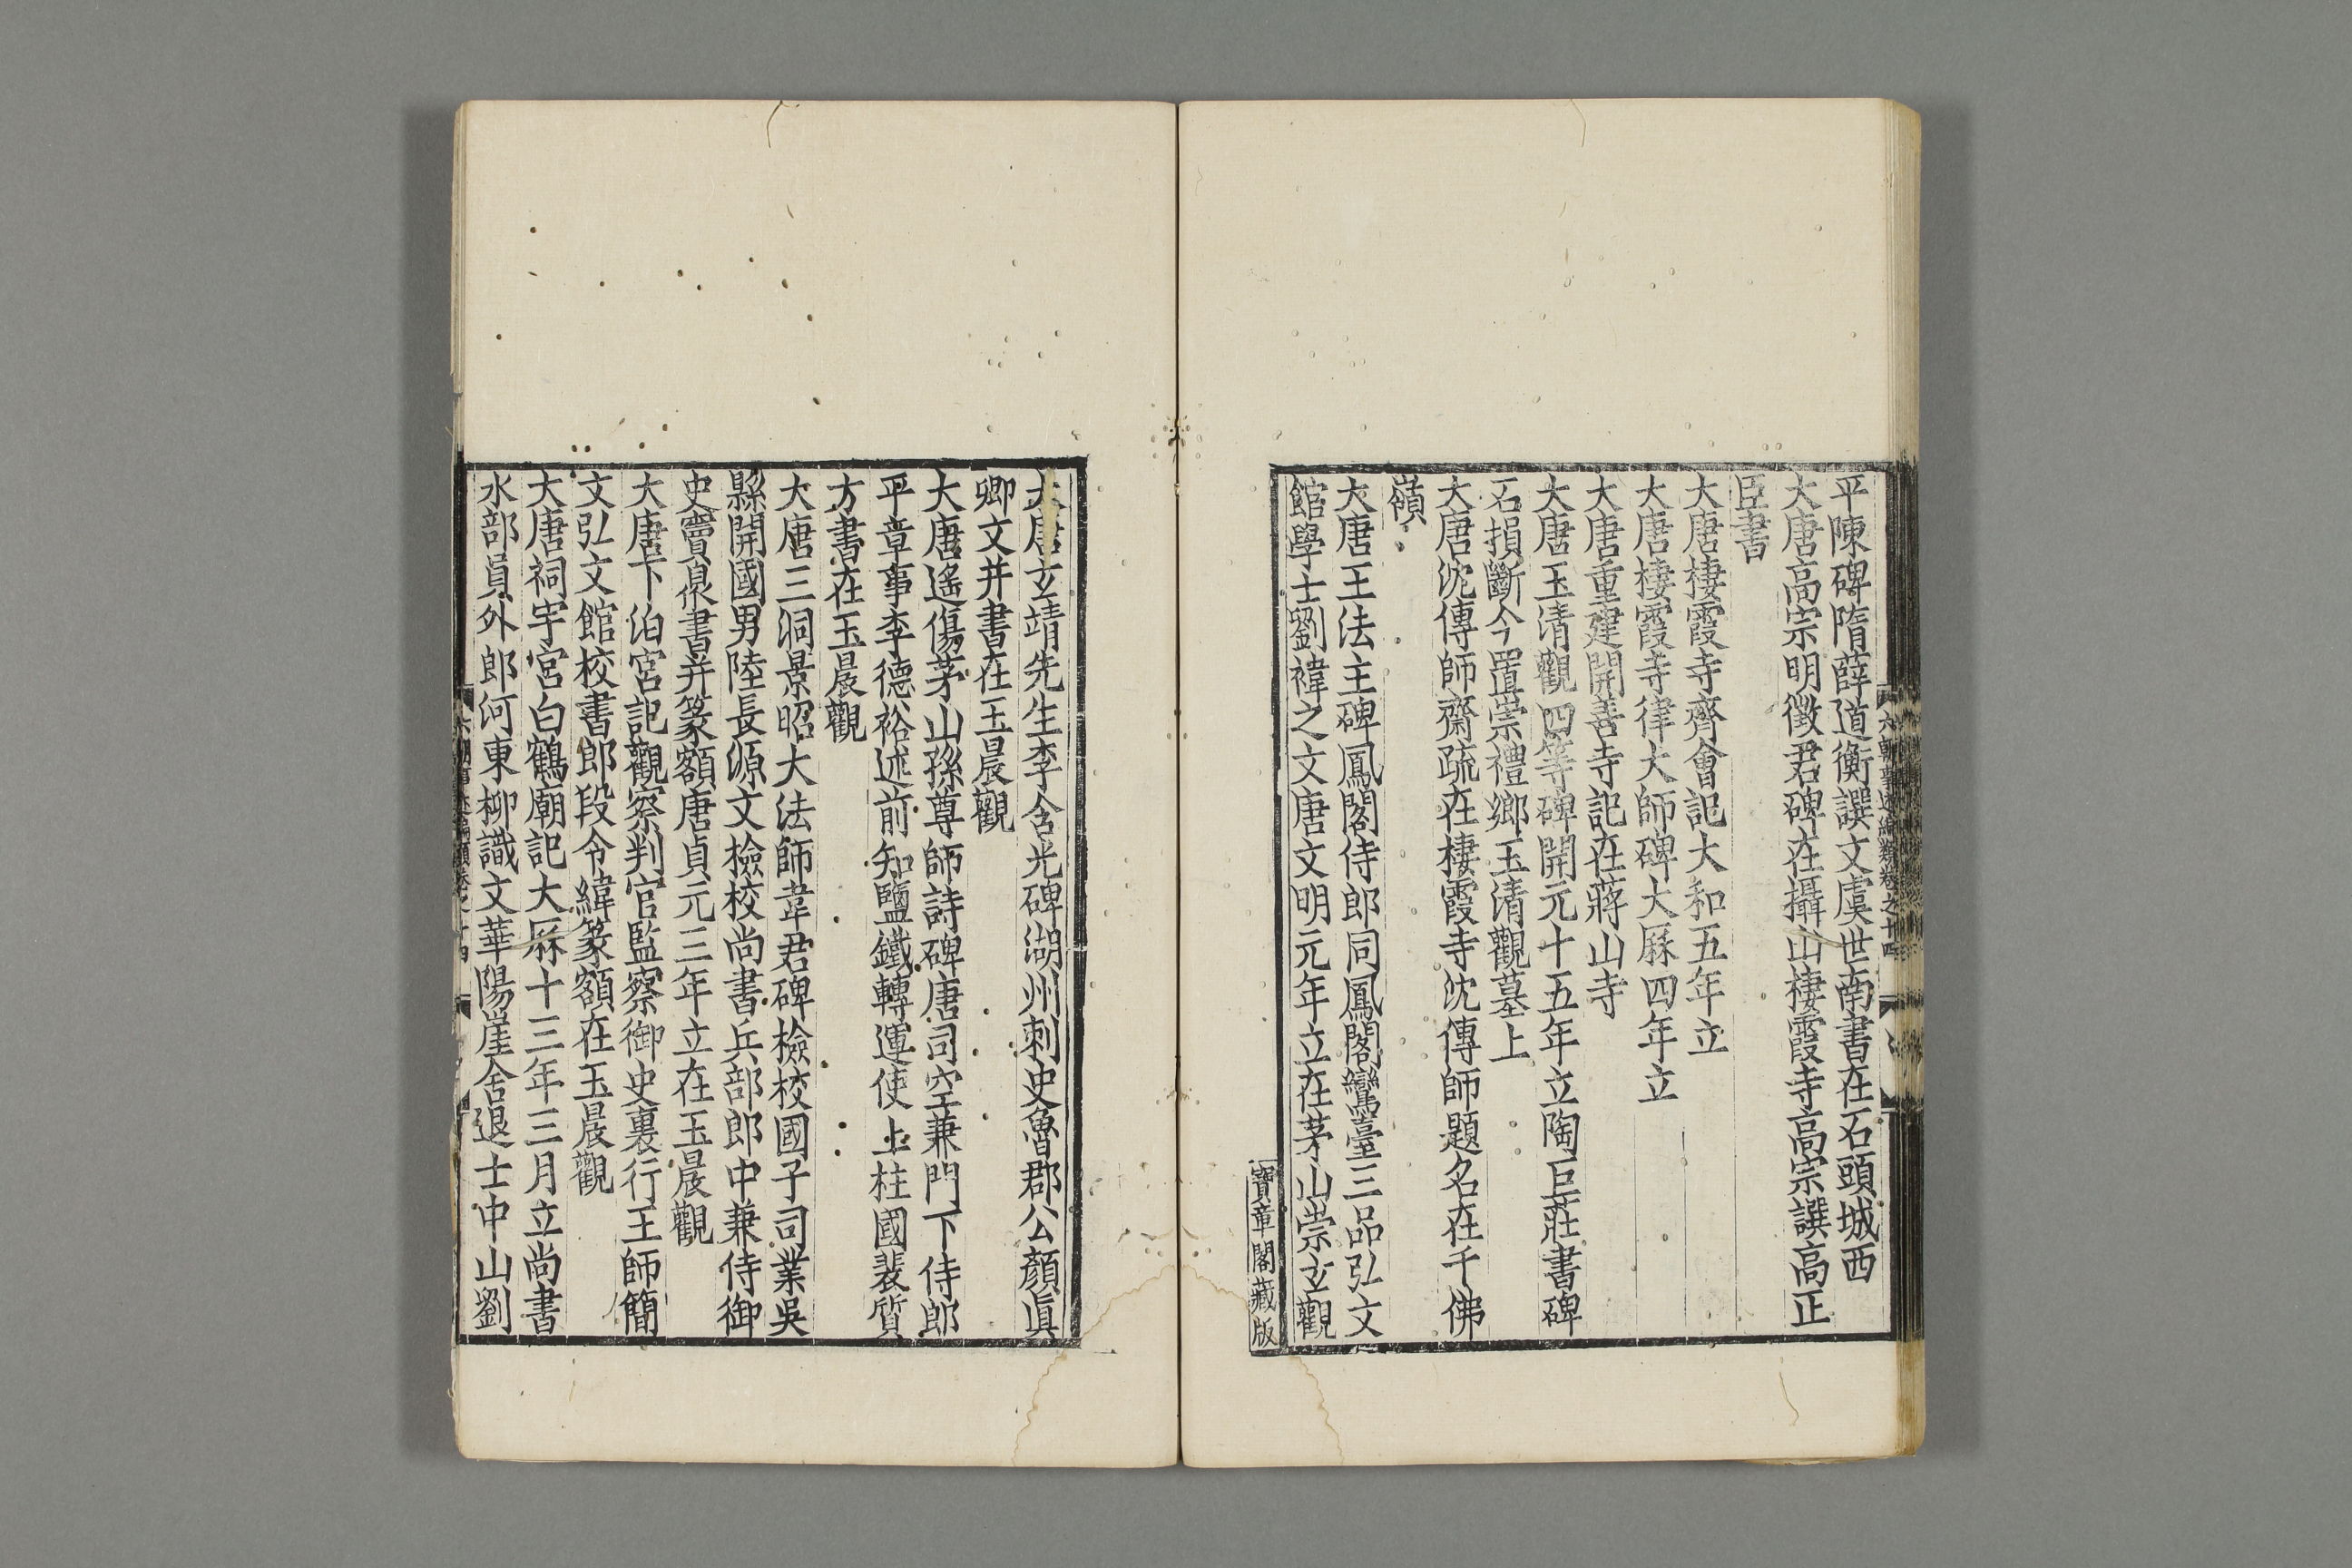 平陳碑隋薛道衡譔文虞世南書在石頭城西
大唐高宗明徵君碑在攝山棲霞寺高宗譔高正
臣書
大唐棲霞寺齊會記大和五年立
大唐棲霞寺律大師碑大厤四年立
大唐重建開善寺記在蔣山寺
大唐玉清觀四等碑開元十五年立陶巨莊書碑
石損斷今置崇禮鄉玉清觀墓上
大唐沈傳師齋疏在棲霞寺沈傳師題名在千佛
嶺
大唐王法主碑鳳閣侍郎同鳳閣鸞臺三品弘文
館學士劉禕之文唐文明元年立在茅山崇玄觀
寶章閣藏版
六朝事迹編類卷之十四
大唐玄靖先生李含光碑湖州刺史魯郡公顏眞
卿文并書在玉晨觀
大唐遙傷茅山孫尊師詩碑唐司空兼門下侍郎
平章事李德裕述前知鹽鐵轉運使上柱國裴質
方書在玉晨觀
大唐三洞景昭大法師韋君碑檢校國子司業吳
縣開國男陸長源文檢校尚書兵部郎中兼侍御
史竇臮書并篆額唐貞元三年立在玉晨觀
大唐下泊宮記觀察判官監察御史裏行王師簡
文弘文館校書郎段令緯篆額在玉晨觀
大唐祠宇宮白鶴廟記大厤十三年三月立尚書
水部員外郎河東柳識文華陽崖舍退士中山劉